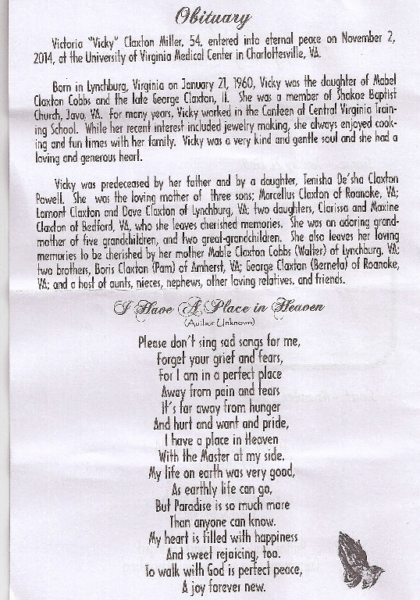 Obituary
Victoria "Vicky" Claxton Miller, 54, entered into eternal peace on November 2,
2014, at the University of Virginia Medical Center in Charlottesville, VA.
Born in Lynchburg, Virginia on January 21, 1960, Vicky was the daughter of Mabel
Claxton Cobbs and the late George Claxton, II. She was a member of Shakoe Baptist
Church, Java, VA. For many years, Vicky worked in the Canteen at Central Virginia Train-
ing School. While her recent interest included jewelry making, she always enjoyed cook-
ing and fun times with her family. Vicky was a very kind and gentle soul and she had a
loving and generous heart.
Vicky was predeceased by her father and by a daughter, Tenisha De'sha Claxton
Powell. She was the loving mother of three sons; Marcellus Claxton of Roanoke, VA;
Lamont Claxton and Dave Claxton of Lynchburg, VA; two daughters, Clarissa and Maxine
Claxton of Bedford, VA, who she leaves cherished memories. She was an adoring grand-
mother of five grandchildren, and two great-grandchildren. She also leaves her loving
memories to be cherished by her mother Mable Claxton Cobbs (Walter) of Lynchburg, VA;
two brothers, Boris Claxton (Pam) of Amherst, VA; George Claxton (Berneta) of Roanoke,
VA; and a host of aunts, nieces, nephews, other loving relatives, and friends.
I Have A Place in Heaven
(Author Unknown)
Please don't sing sad songs for me,
Forget your grief and fears,
For I am in a perfect place
Away from pain and tears
It's far away from hunger
And hurt and want and pride,
I have a place in Heaven
With the Master at my side.
My life on earth was very good,
As earthly life can go,
But Paradise is so much more
Than anyone can know.
My heart is filled with happiness
And sweet rejoicing, too.
To walk with God is perfect peace,
A joy forever new.